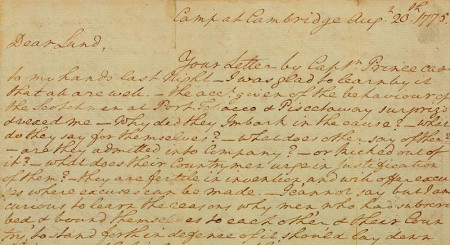 Camp at Cambridge Augt. 20th. 1775.
Dear Lund,
Your Letter by Captn. Prince came
to my hands last Night—I was glad to learn by it
that all are well.—the acct. given of the behaviour of
the Scotchmen at Port Tobacco & Piscattaway surprizd
& vexed me—Why did they Imbark in the cause?—what
do they say for themselves?—what does other say of them?
—are they admitted into Company?—or kicked out of
it?—what does their Countrymen urge in justification
of them?—they are fertile in invention, and will offer excu
ses where excuses can be made.—I cannot say but I am
curious to learn the reasons why men, who had subscri
bed & bound themselves to each other, & their Coun
try, to stand forth in defence of it, should lay down